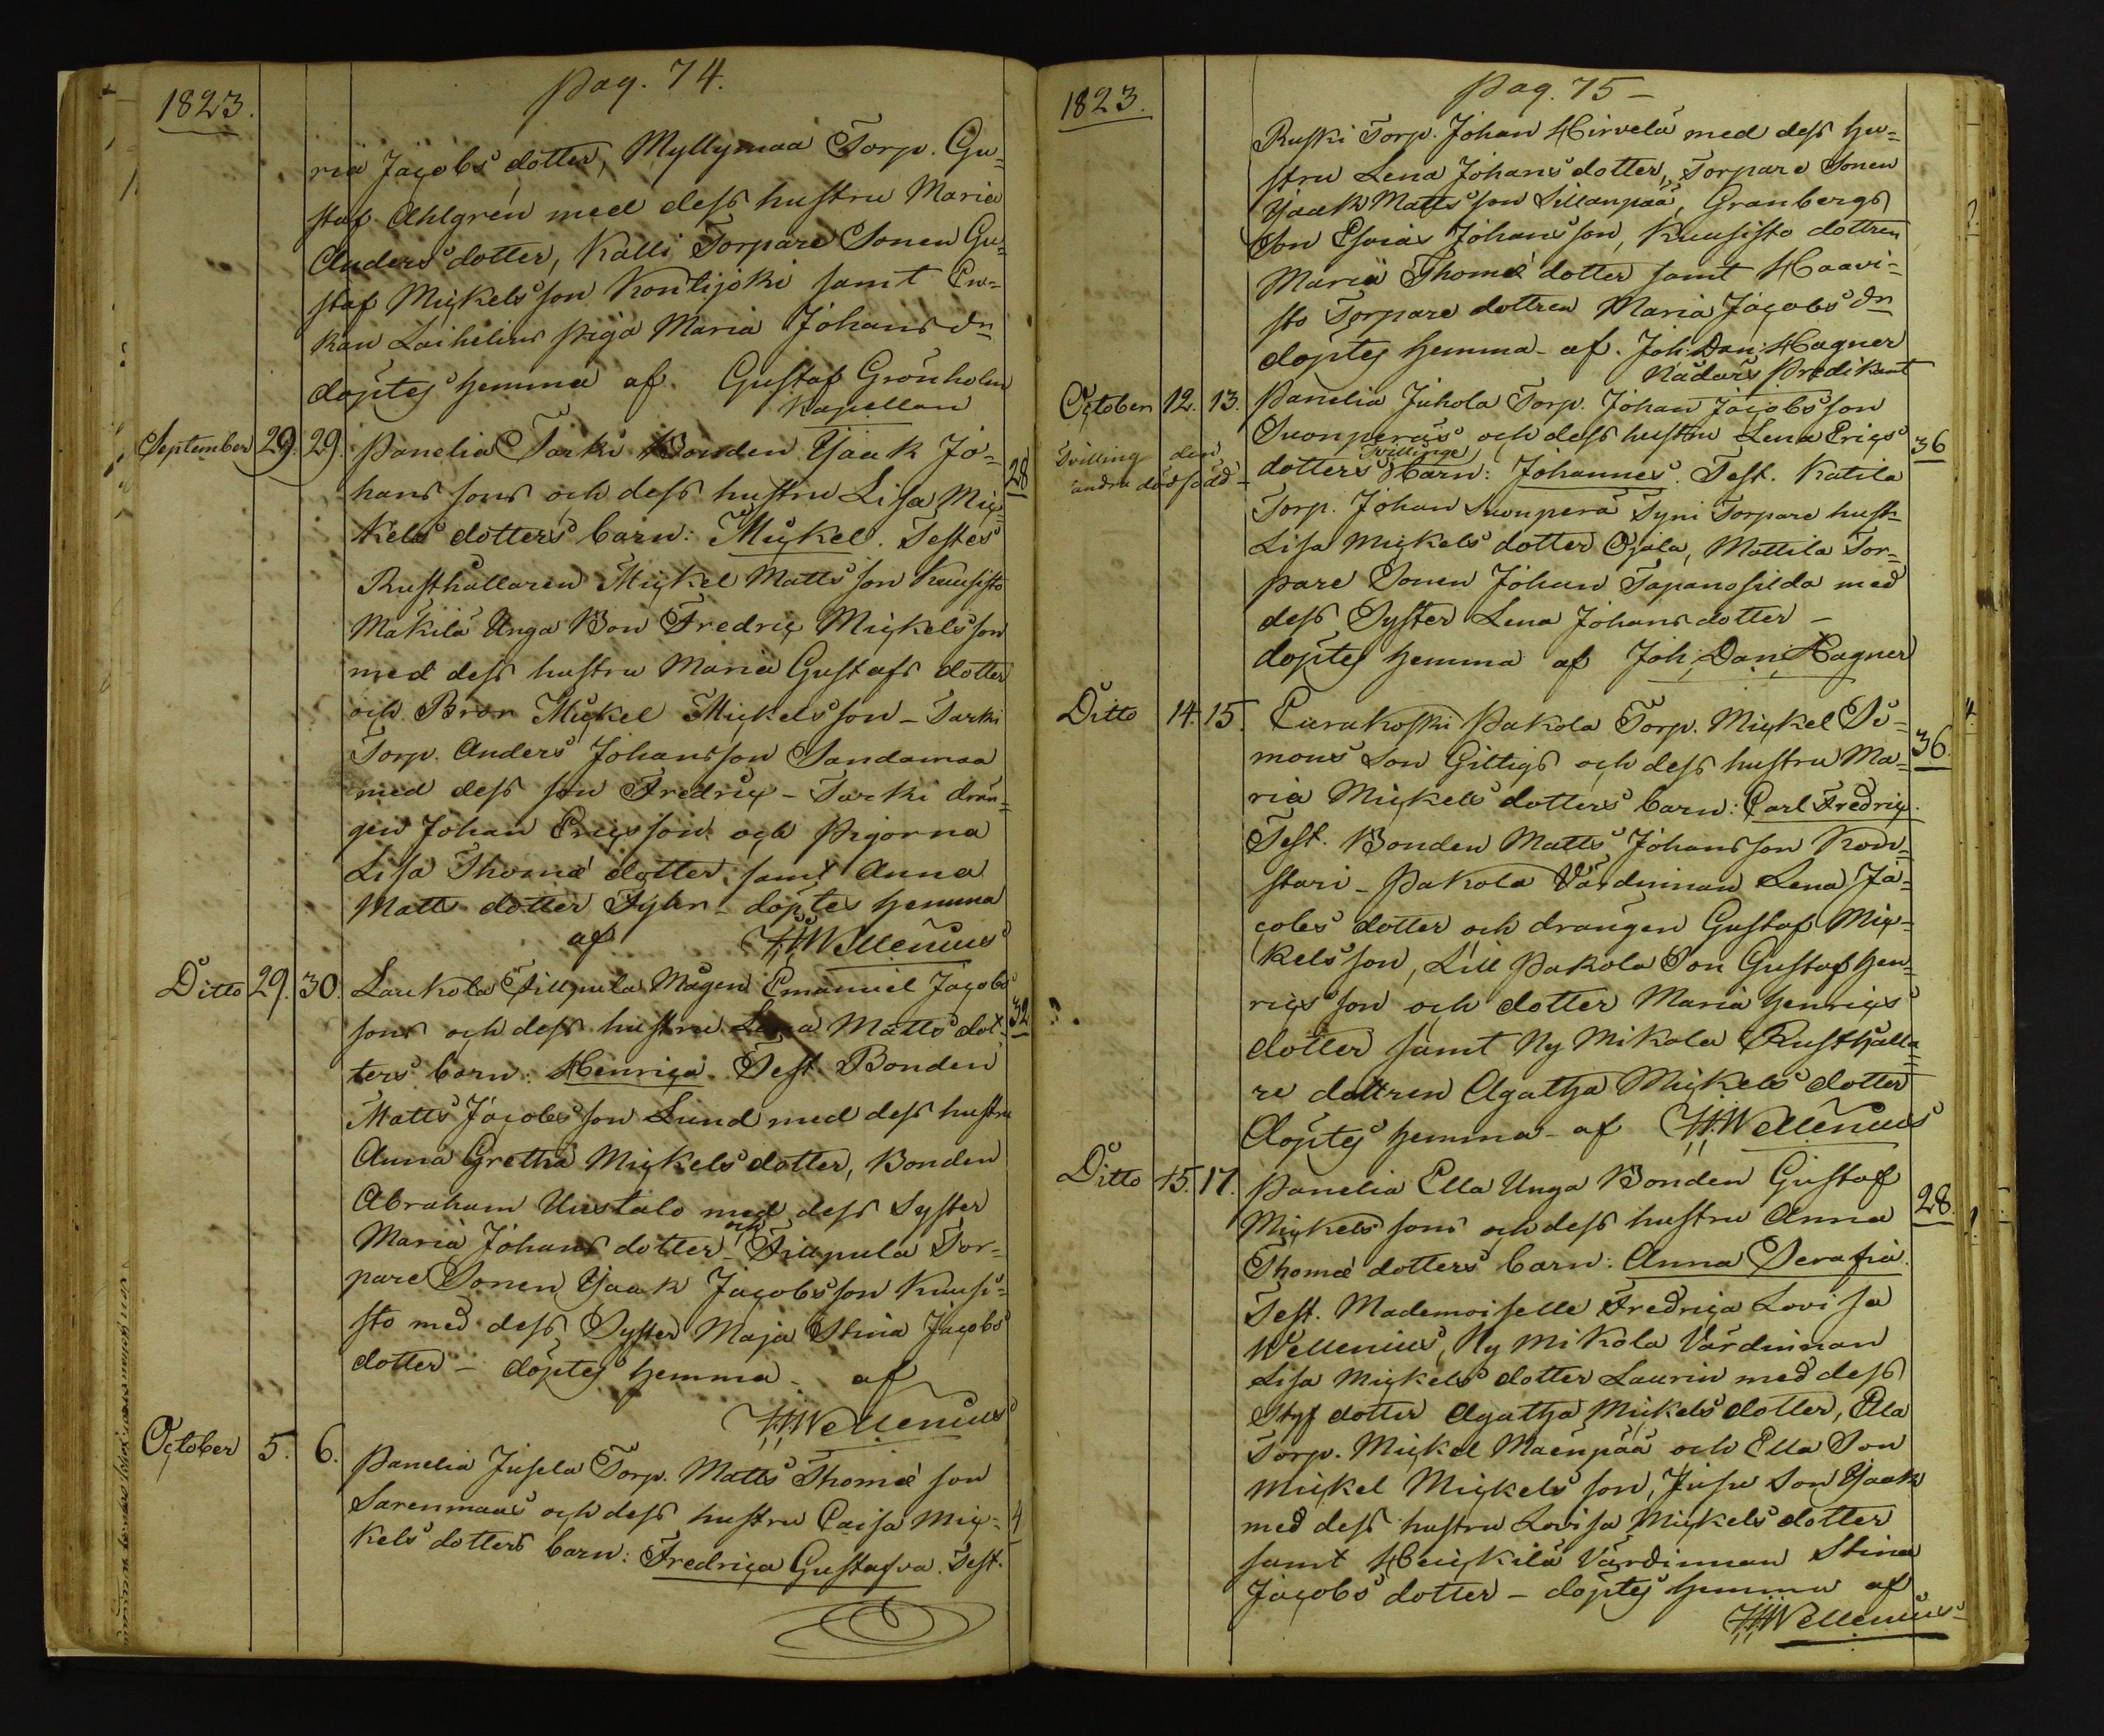 1823.
Pag. 74.
ria Jacobs dotter, Myllymaa Torp. Gu-
staf Ahlgren med dess hustru Maria
Anders dotter, Kalli Torpare Sonen Gu-
staf Mickels son Kontijoki samt En-
kan Laihelins Piga Maria Johans dr
döptes hemma af Gustaf Grönholm
Kapellan
September 29. 29. Panelia Tarki Bonden Isaak Jo-
hans sons och dess hustru Lisa Mic- 28
kels dotters barn: Mickel. Testes
Rusthållaren Mickel Matts son Kuusisto
Mäkilä Unga Bon Fredric Mickels son
med dess hustru Maria Gustafs dotter
och Bror Mickel Mickels son - Tarki
Torp. Anders Johans son Sandamaa
med dess son Fredric - Tarki drän-
gen Johan Erics son och Pigorna
Lisa Thomæ dotter samt Anna
Matts dotter Fyhr - döptes hemma
af HHWellenius
Ditto 29. 30. Laukola Fillpula Mågen Emanuel Jacobs
sons och dess hustru Lena Matts dot- 32
ters barn: Henrica. Test. Bonden
Matts Jacobs son Lund med dess hustru
Anna Gretha Mickels dotter, Bonden
Abraham Uustalo med dess Syster
Maria Johans dotter och Fillpula Tor-
pare Sonen Isaak Jacobs son Kuusi-
sto med dess Syster Maja Stina Jacobs
dotter - döptes hemma - af
HHWellenius
October 5. 6. Panelia Jusela Torp. Matts Thomæ son
Sarenmaas och dess hustru Caisa Mic- 4
kels dotters barn: Fredrica Gustafva. Test.
1823.
Pag. 75 -
Ruski Torp. Johan Hirvelä med dess hu-
stru Lena Johans dotter, Torpare Sonen
Isaak Matts son Sillanpää, Granbergs
Son Esaias Johans son, Kuusisto dottren
Maria Thomæ dotter samt Haavi-
sto Torpare dottren Maria Jacobs dr
döptes hemma - af. Joh: Dan: Hagner
Nådårs Predikant
October 12. 13. Panelia Juhola Torp. Johan Jacobs son
Suonperäs och dess hustru Lena Erics 36
Tvilling den andra dödfödd -
dotters Tvillinge Barn: Johannes. Test. Katila
Torp. Johan Suonperä Syni Torpare hust.
Lisa Mickels dotter Ojala, Mattila Tor-
pare Sonen Johan Tapanosilda med
dess Syster Lena Johans dotter -
döptes hemma af Joh: Dan: Hagner
Ditto 14. 15. Eurakoski Pakola Torp. Mickel Si-
mons Son Gittigs och dess hustru Ma- 36.
ria Mickels dotters barn: Carl Fredric.
Test. Bonden Matts Johans son Kom-
stari - Pakola Värdinnan Lena Ja-
cobs dotter och drängen Gustaf Mic-
kels son, Lill Pakola Son Gustaf Hen-
rics son och dotter Maria Henrics
dotter samt Ny Mikola Rusthålla-
re dottren Agatha Mickels dotter
döptes hemma - af HHWellenius
Ditto 15. 17. Panelia Ella Unga Bonden Gustaf
Mickels sons och dess hustru Anna 28.
Thomæ dotters barn: Anna Serafia.
Test. Mademoiselle Fredrica Lovisa
Wellenius, Ny Mikola Värdinnan
Lisa Mickels dotter Laurin med dess
Styf dotter Agatha Mickels dotter, Ella
Torp. Mickel Maenpää och Ella Son
Mickel Mickels son, Jusu Son Isaak
med dess hustru Lovisa Mickels dotter
samt Heickilä Värdinnan Stina
Jacobs dotter - döptes hemma af
HHWellenius